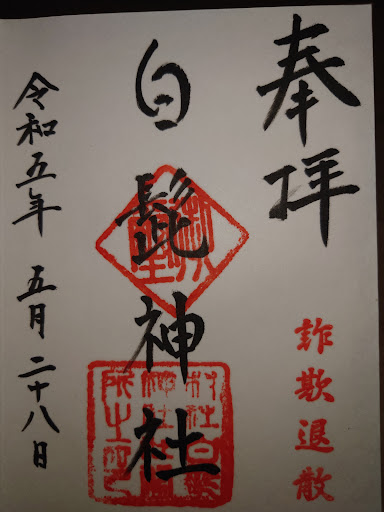 奉拝
詐欺退散
白髭神社
令和五年 五月 二十八日